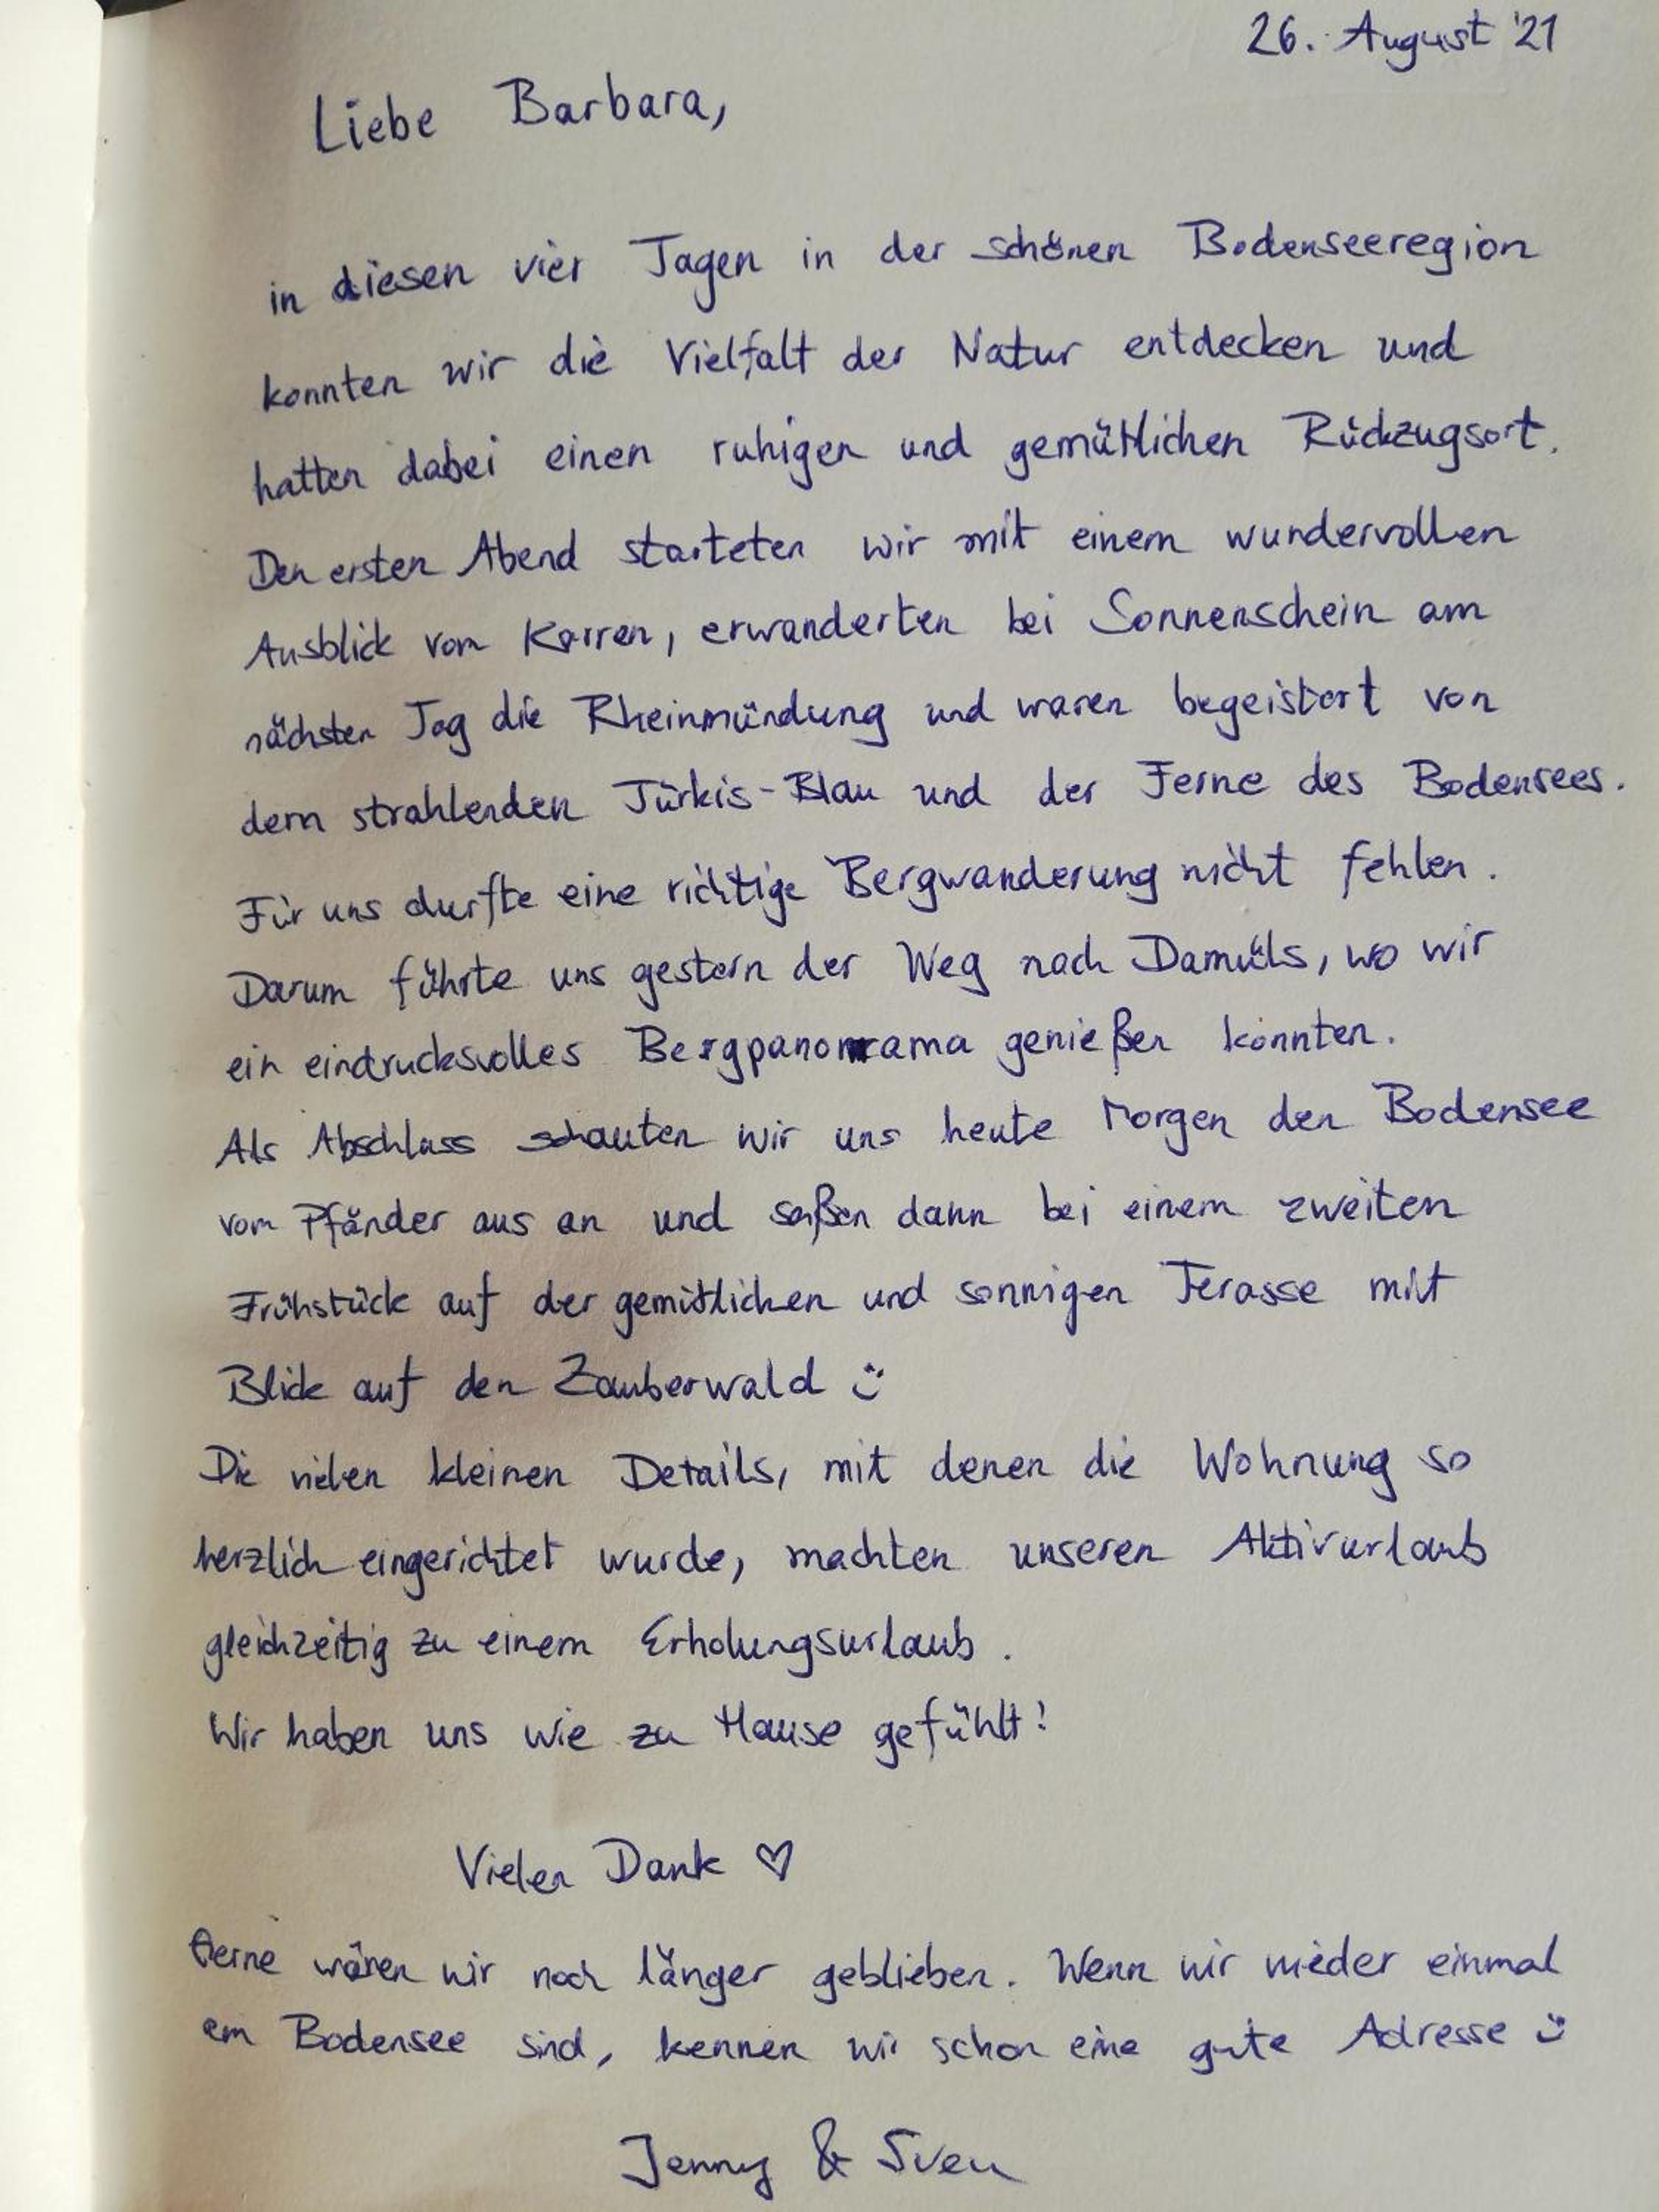 26. August '21
Liebe Barbara,
in diesen vier Tagen in der schönen Bodenseeregion
konnten wir die Vielfalt der Natur entdecken und
hatten dabei einen ruhigen und gemütlichen Rückzugsort.
Den ersten Abend starteten wir mit einem wundervollen
Ausblick vom Karren, erwanderten bei Sonnenschein am
nächsten Tag die Rheinmündung und waren begeistert von
dem strahlenden Türkis-Blau und der Ferne des Bodensees.
Für uns durfte eine richtige Bergwanderung nicht fehlen.
Darum führte uns gestern der Weg nach Damüls, wo wir
ein eindrucksvolles Bergpanorama genießen konnten.
Als Abschluss schauten wir uns heute Morgen den Bodensee
vom Pfänder aus an und saßen dann bei einem zweiten
Frühstück auf der gemütlichen und sonnigen Terasse mit
Blick auf den Zauberwald ☺
Die vielen kleinen Details, mit denen die Wohnung so
herzlich eingerichtet wurde, machten unseren Aktivurlaub
gleichzeitig zu einem Erholungsurlaub.
Wir haben uns wie zu Hause gefühlt!
Vielen Dank ♡
Gerne wären wir noch länger geblieben. Wenn wir wieder einmal
am Bodensee sind, kennen wir schon eine gute Adresse ☺
Jenny & Sven